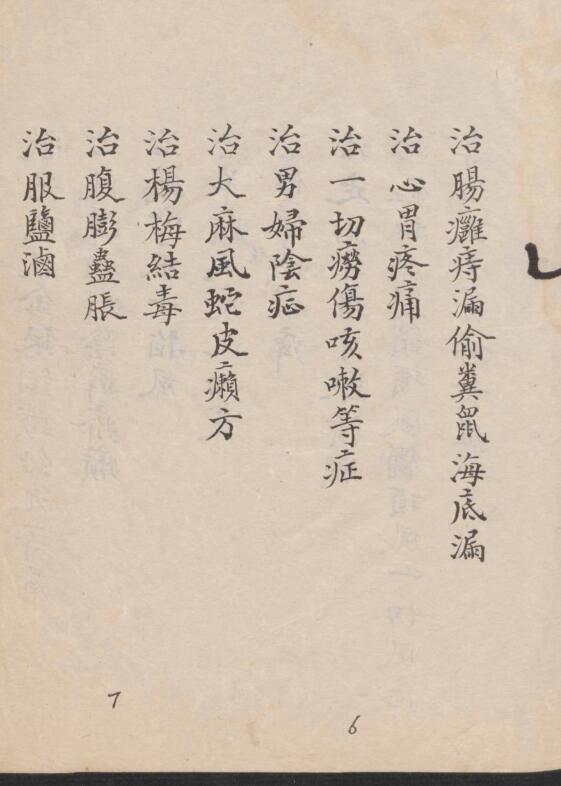 治腸癰痔漏偷糞鼠海底漏
治心胃疼痛
治一切癆傷咳嗽等症
治男婦陰症
治大麻風蛇皮癩方
治楊梅結毒
治腹膨蠱脹
治服鹽滷
6
7